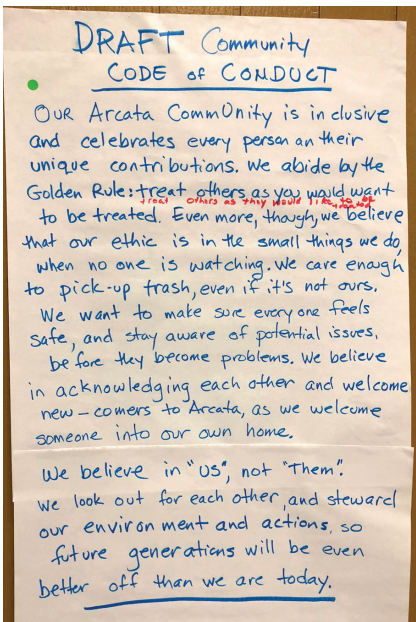 DRAFT Community
CODE of CONDUCT
OUR Arcata CommUnity is inclusive
and celebrates every person an their
unique contributions. We abide by the
Golden Rule: treat others as you would want
treat others as they would like to be
treated
to be treated. Even more, though, we believe
that our ethic is in the small things we do,
when no one is watching. We care enough
to pick-up trash, even if it's not ours.
We want to make sure every one feels
safe, and stay aware of potential issues,
before they become problems. We believe
in acknowledging each other and welcome
new-comers to Arcata, as we welcome
someone into our own home.
We believe in "US", not "Them".
We look out for each other, and steward
our environment and actions, so
future generations will be even
better off than we are today.